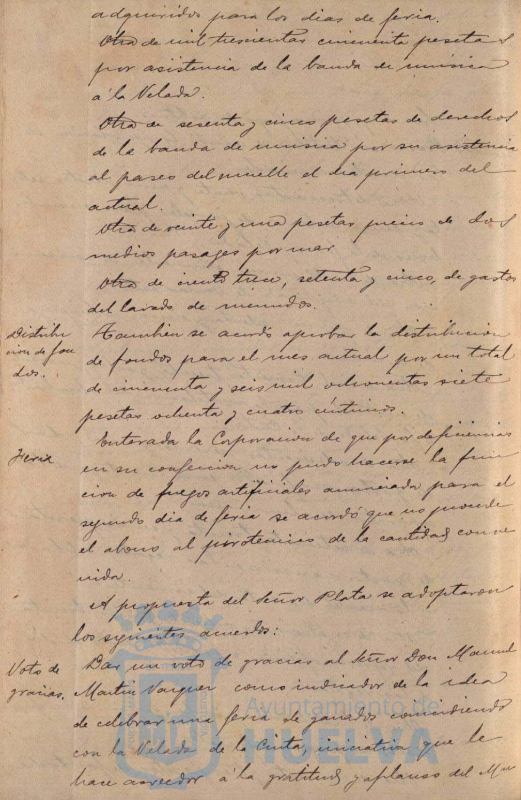 adquiridos para los dias de feria.
Otra de mil trescientas cincuenta pesetas
por asistencia de la banda de musica
á la Velada.
Otra de sesenta y cinco pesetas de derechos
de la banda de musica por su asistencia
al paseo del muelle el dia primero del
actual.
Otra de veinte y una pesetas precio de dos
medios pasages por mar
Otra de ciento trece, setenta y cinco, de gastos
del lavado de menudos.
Distribu
cion de fon
dos.
Tambien se acordó aprobar la distribucion
de fondos para el mes actual por un total
de cincuenta y seis mil ochocientas siete
pesetas ochenta y cuatro céntimos.
Feria
Enterada la Corporacion de que por deficiencias
en su confeccion no pudo hacerse la fun
cion de fuegos artificiales anunciada para el
segundo dia de feria se acordó que no procede
el abono al pirotécnico de la cantidad conve
nida.
A propuesta del Señor Plata se adoptaron
los siguientes acuerdos:
Voto de
gracias.
Dar un voto de gracias al Señor Don Manuel
Martin Vazquez como indicador de la idea
de celebrar una feria de ganados coincidiendo
con la Velada de la Cinta, iniciativa que le
hace acreedor á la gratitud y aplauso del Mu
Ayuntamiento de
HUELVA